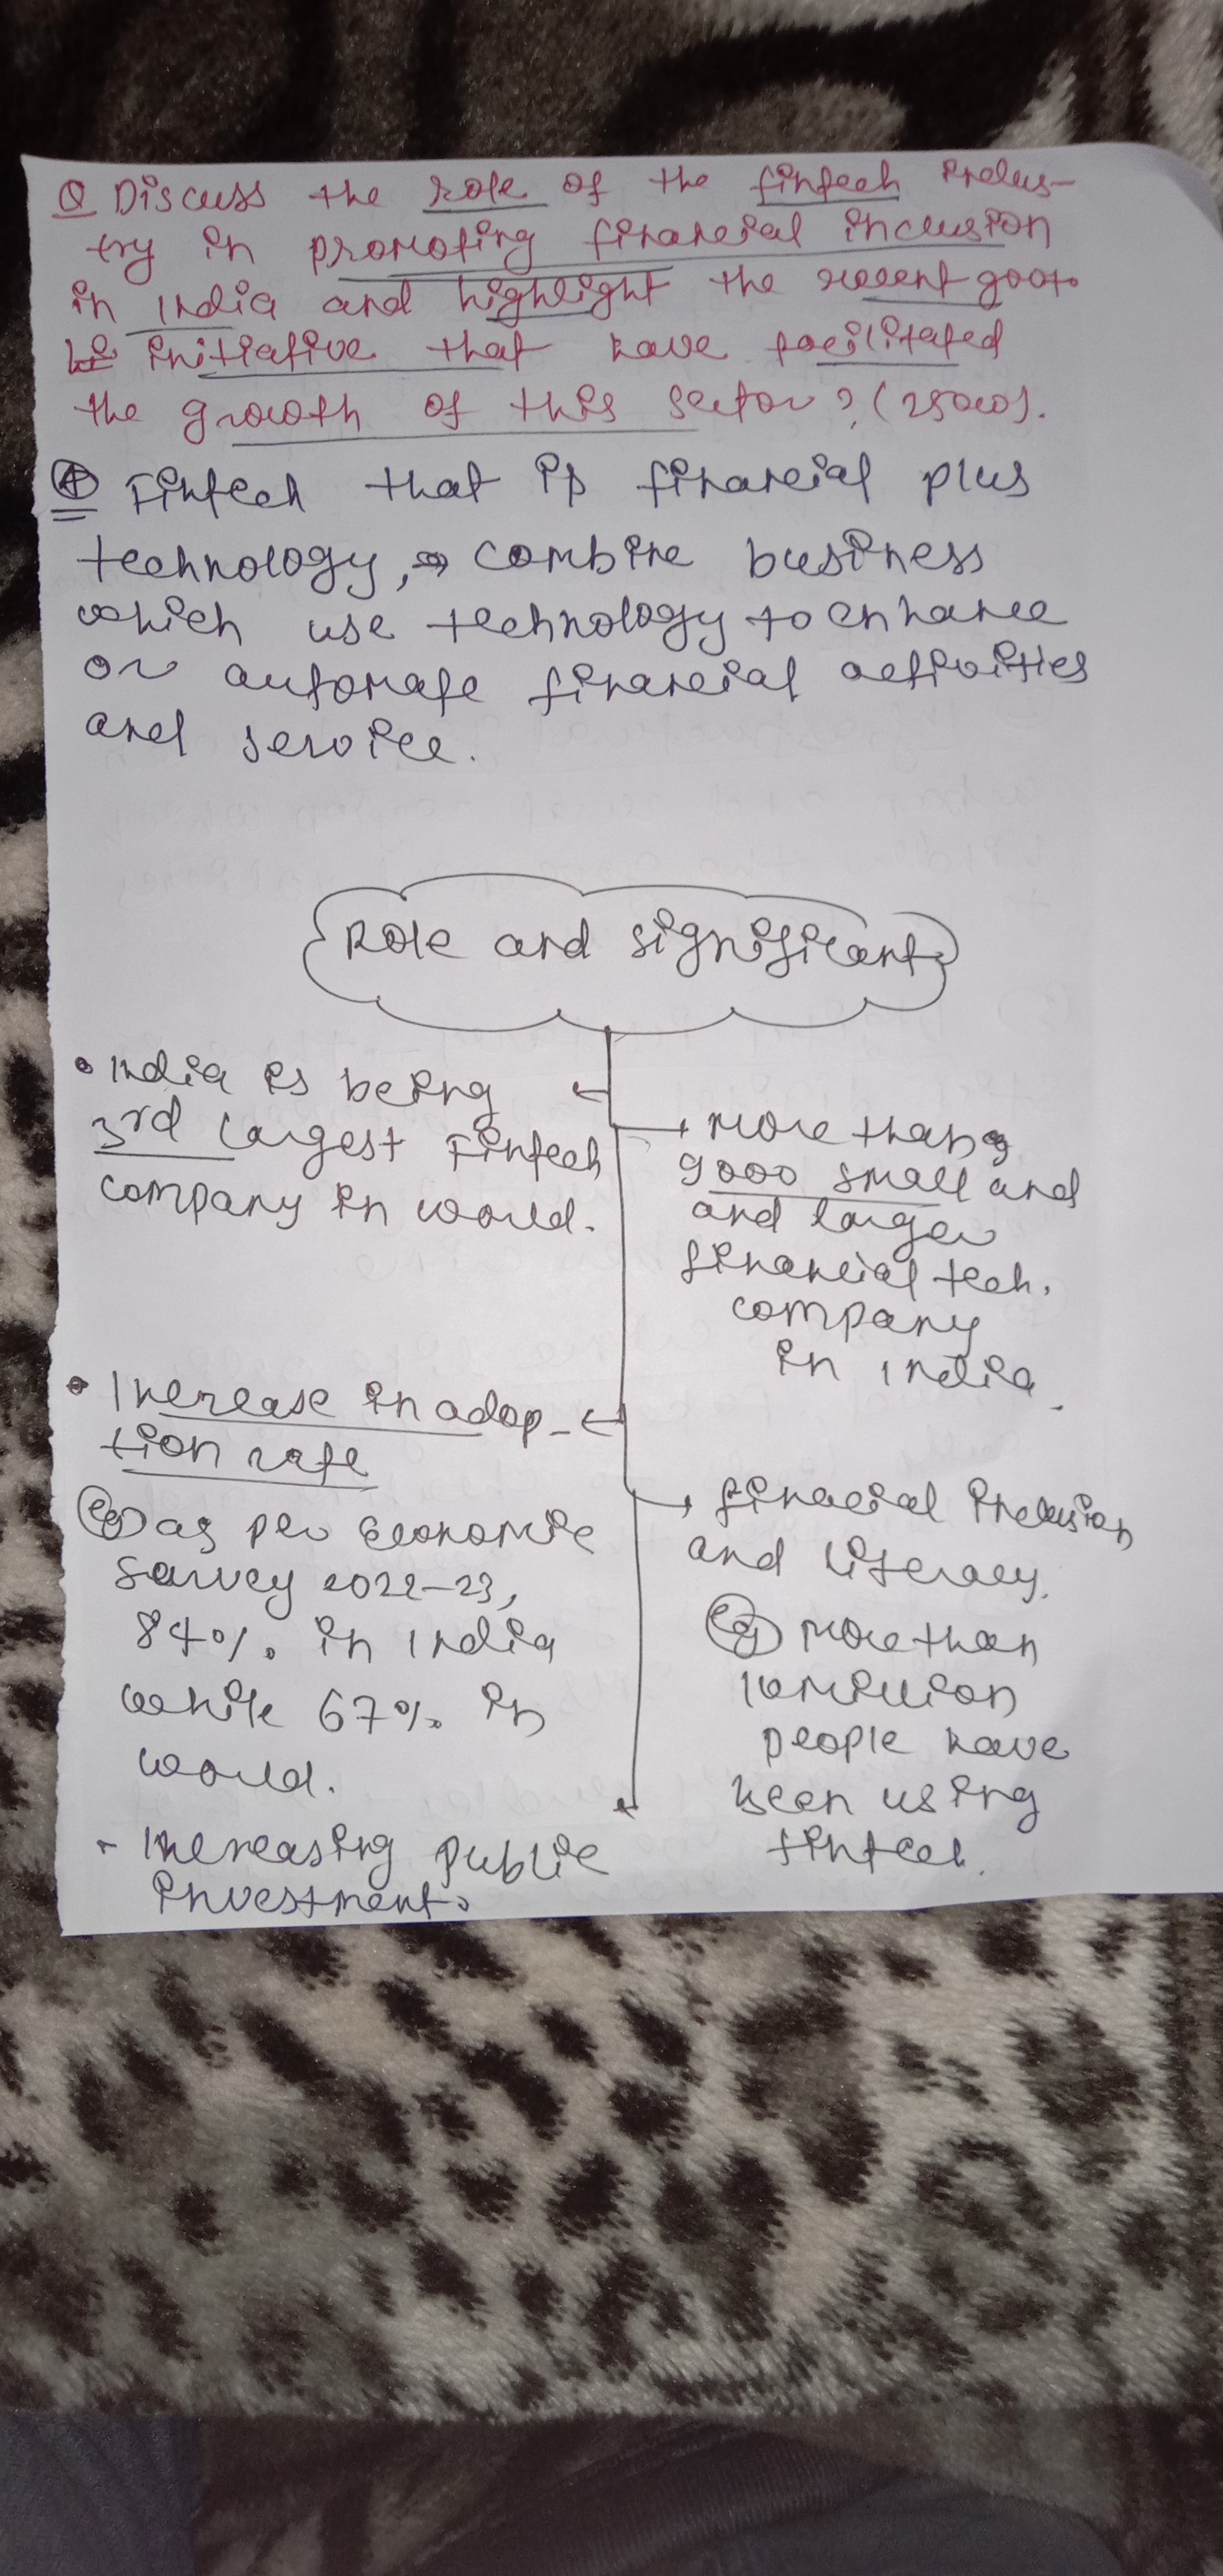 Q Discuss the role of the fintech indus-
try in promoting financial inclusion
in India and highlight the recent govt.
initiative that have facilitated
the growth of this sector? (250w).
A Fintech that is financial plus
technology, combine business
which use technology to enhance
or automate financial activities
and service.
Role and significant
• India is being
3rd largest Fintech
company in world.
→ more than
9000 small and
and larger
financial tech.
company
in India
• Increase in adop-
tion rate
eg as per Economic
Survey 2022-23,
84% in India
while 67% in
world.
→ finacial inclusion
and literacy.
eg more than
million
people have
been using
fintech.
- Increasing public
investment.